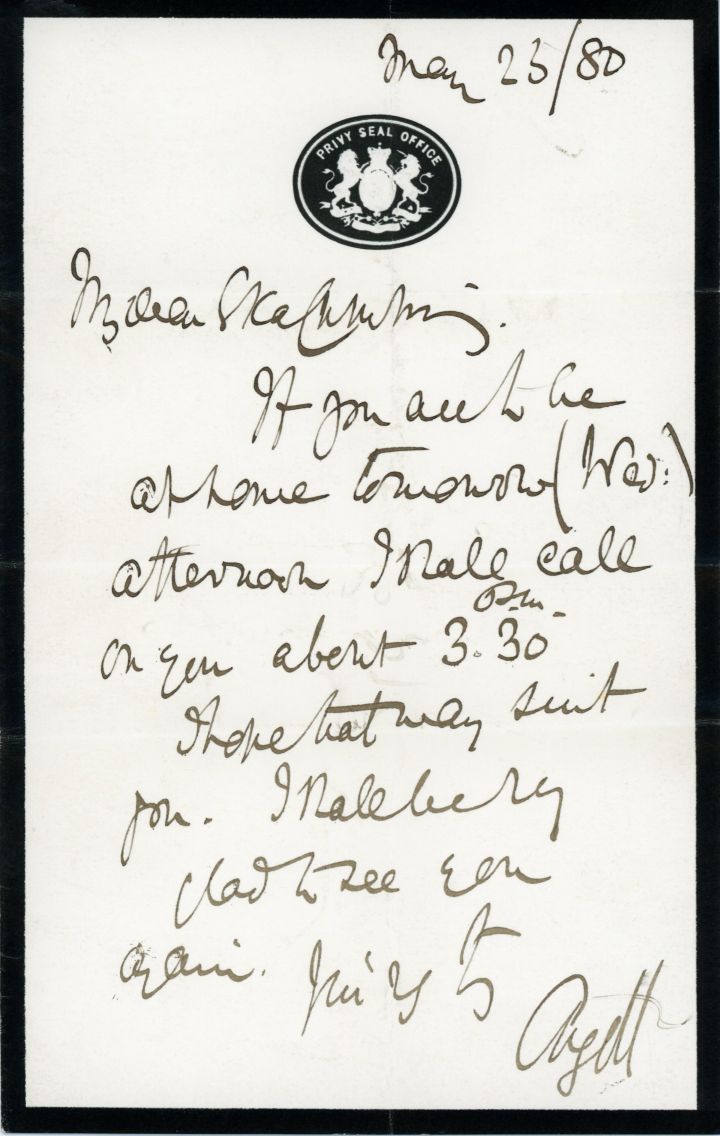 May 25/80
PRIVY SEAL OFFICE
My dear
If you are to be
at home tomorrow (Wed:)
afternoon I shall call
on you about 3.30 p.m.
I hope that may suit
you. I shall be very
glad to see you
again. Yours ty
Argyll